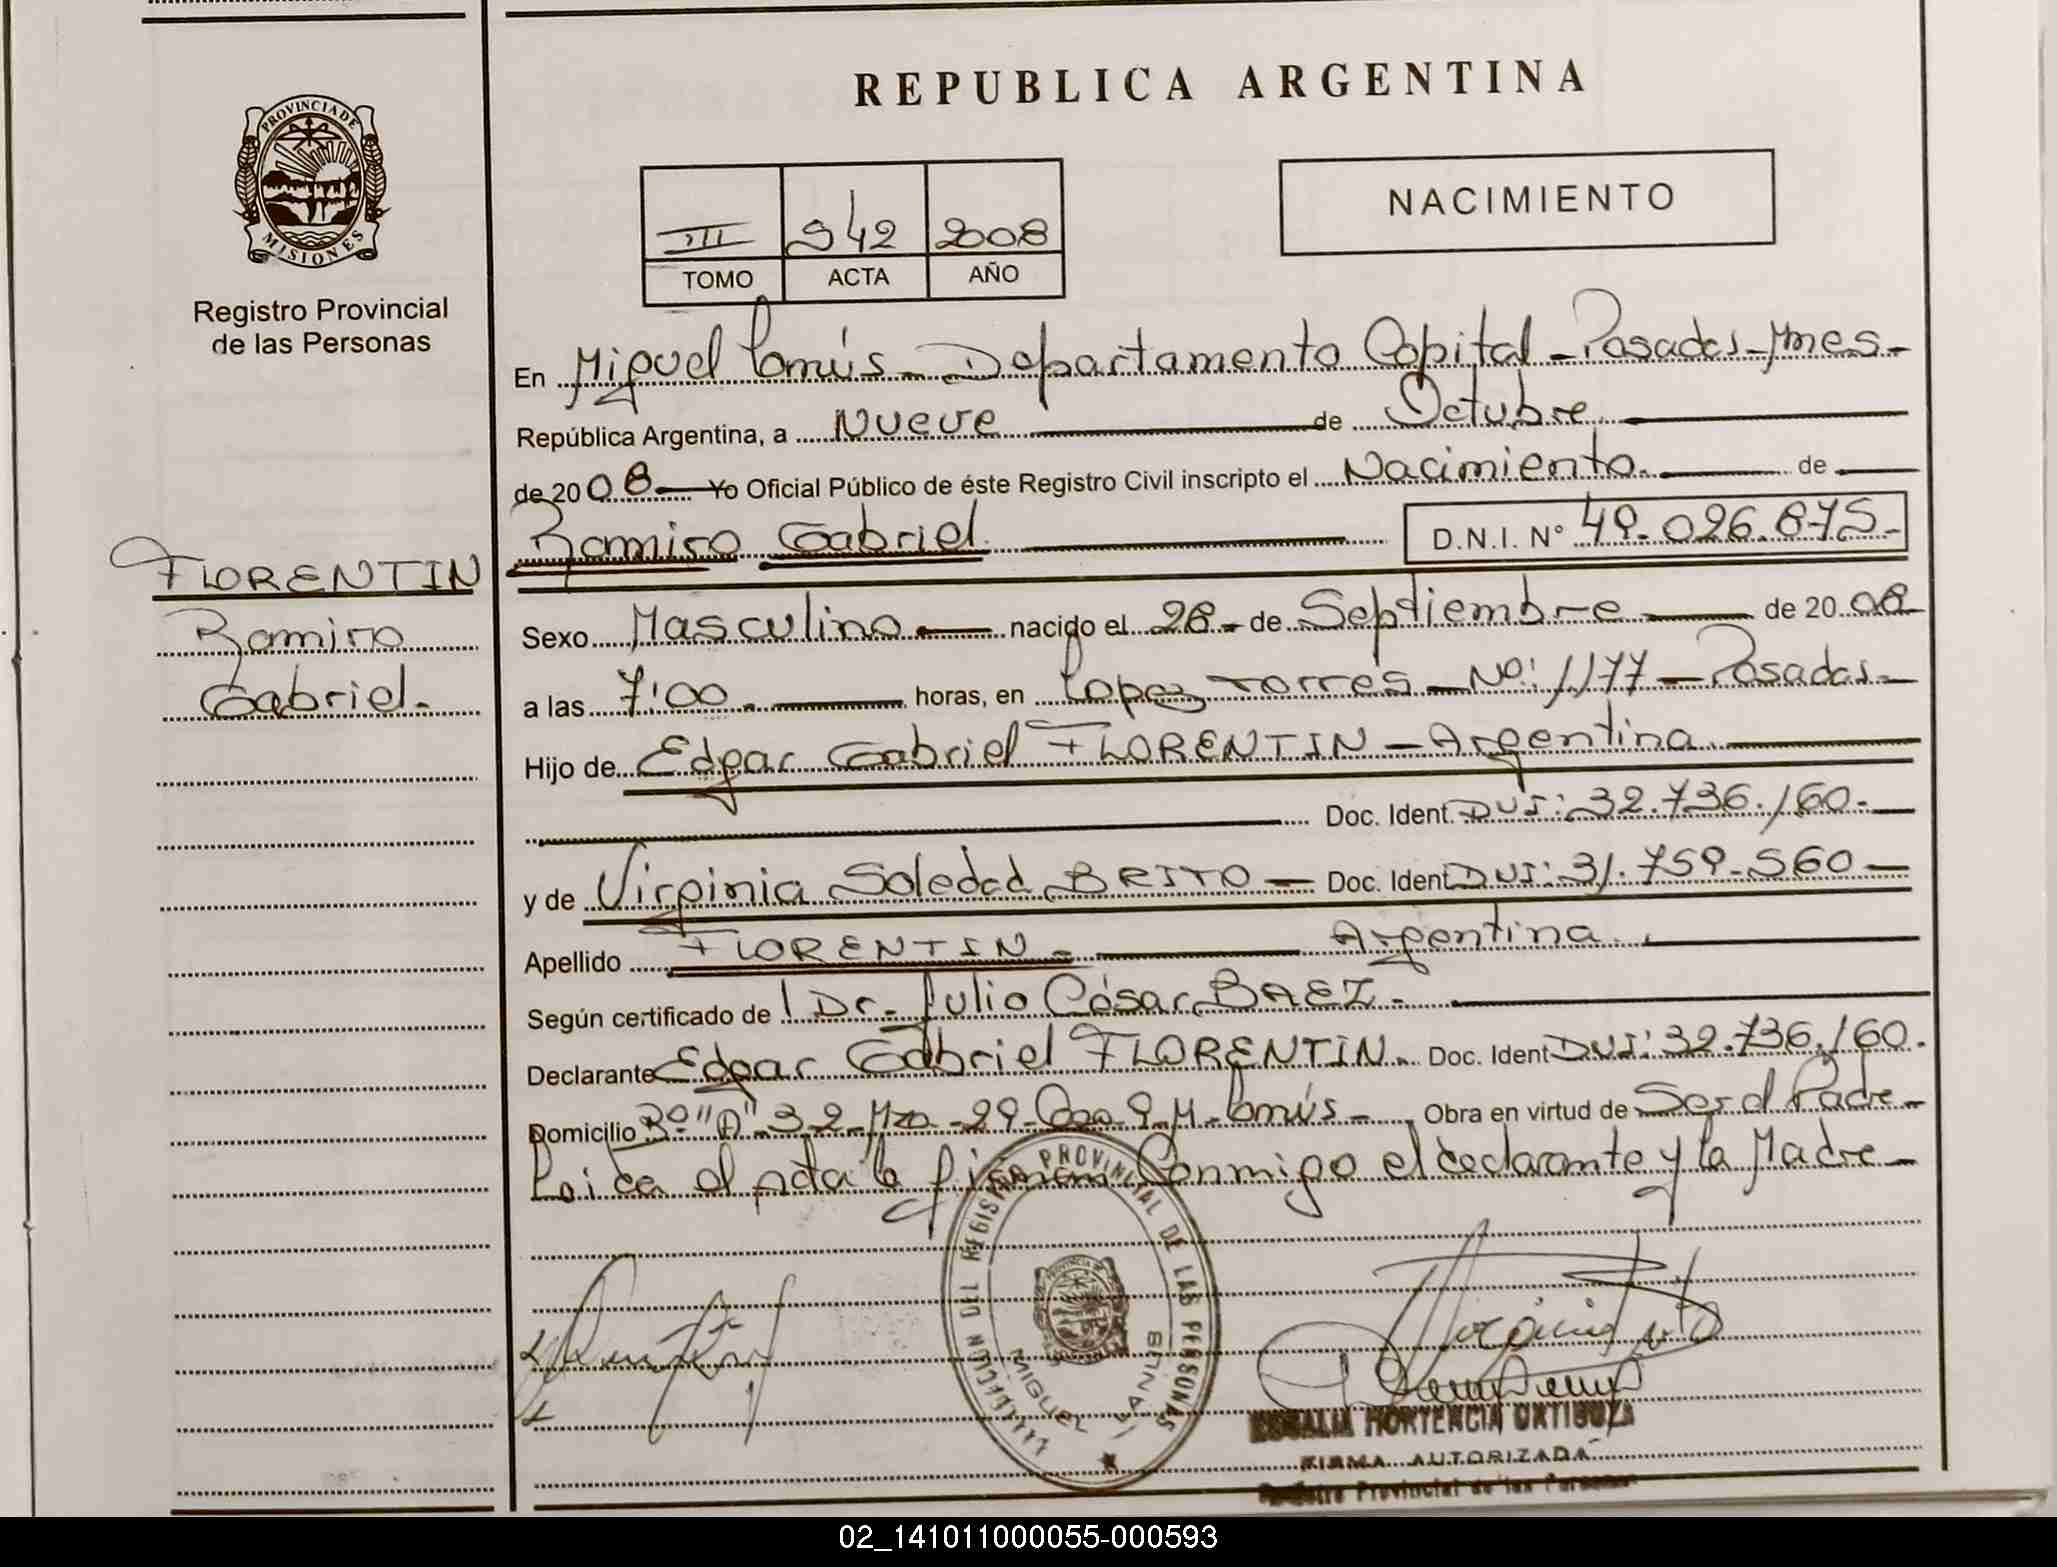 REPUBLICA ARGENTINA
PROVINCIA DE
MISIONES
Registro Provincial
de las Personas
III 942 2008
TOMO ACTA AÑO
NACIMIENTO
En Miguel Lanús - Departamento Capital - Posadas - Mnes -
República Argentina, a Nueve de Octubre
de 2008 Yo Oficial Público de éste Registro Civil inscripto el Nacimiento de
Ramiro Gabriel D.N.I. Nº 49.026.875-
FLORENTIN
Ramiro
Gabriel.-
Sexo Masculino nacido el 28 - de Septiembre de 2008
a las 7:00 horas, en Lopez Torres - Nº: 1177 - Posadas -
Hijo de Edgar Gabriel FLORENTIN - Argentina
Doc. Ident. DNI: 32.736.160.-
y de Virginia Soledad BRITO - Doc. Ident DNI: 31.759.560 -
Apellido FLORENTIN - Argentina
Según certificado de Dr. Julio César BAEZ -
Declarante Edgar Gabriel FLORENTIN. Doc. Ident DNI: 32.736.160.
Domicilio Bº "A" 32 - Mza - 29 - Casa 9 M. Lanús - Obra en virtud de Ser el Padre -
Leida el acta la firman Conmigo el declarante y la Madre -
DEL REGISTRO PROVINCIAL DE LAS PERSONAS
MIGUEL LANUS
PROVINCIA DE
HORTENCIA
FIRMA AUTORIZADA
Registro Provincial de las Personas
02_141011000055-000593